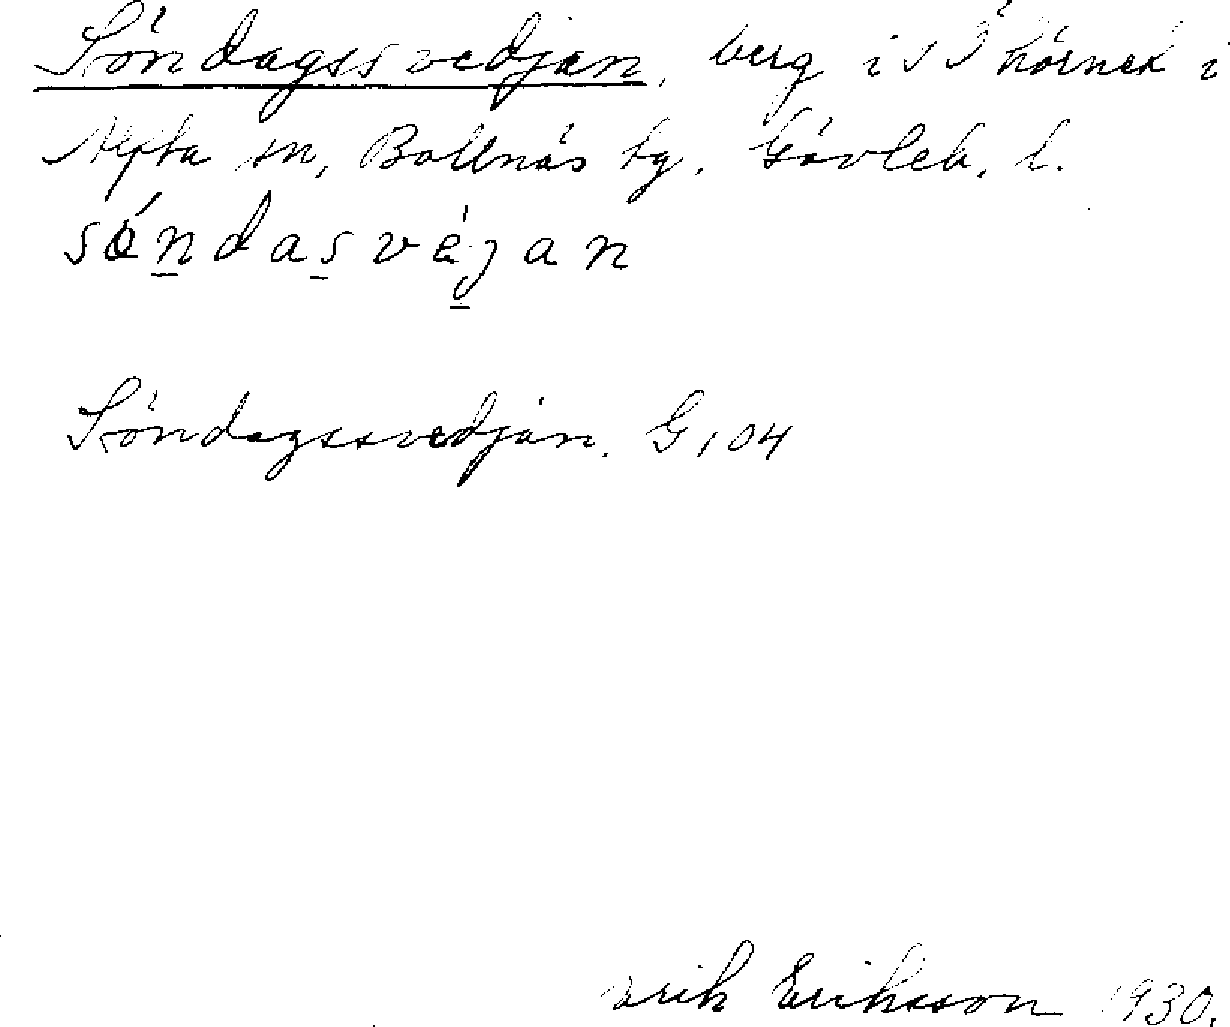 Söndagssvedjan, berg i s Ö hörnet i
Alfta sn, Bollnäs tg. Gävleb. l.
söndasvejan
Söndagssvedjan. G, 04
Erik Eriksson 1930.